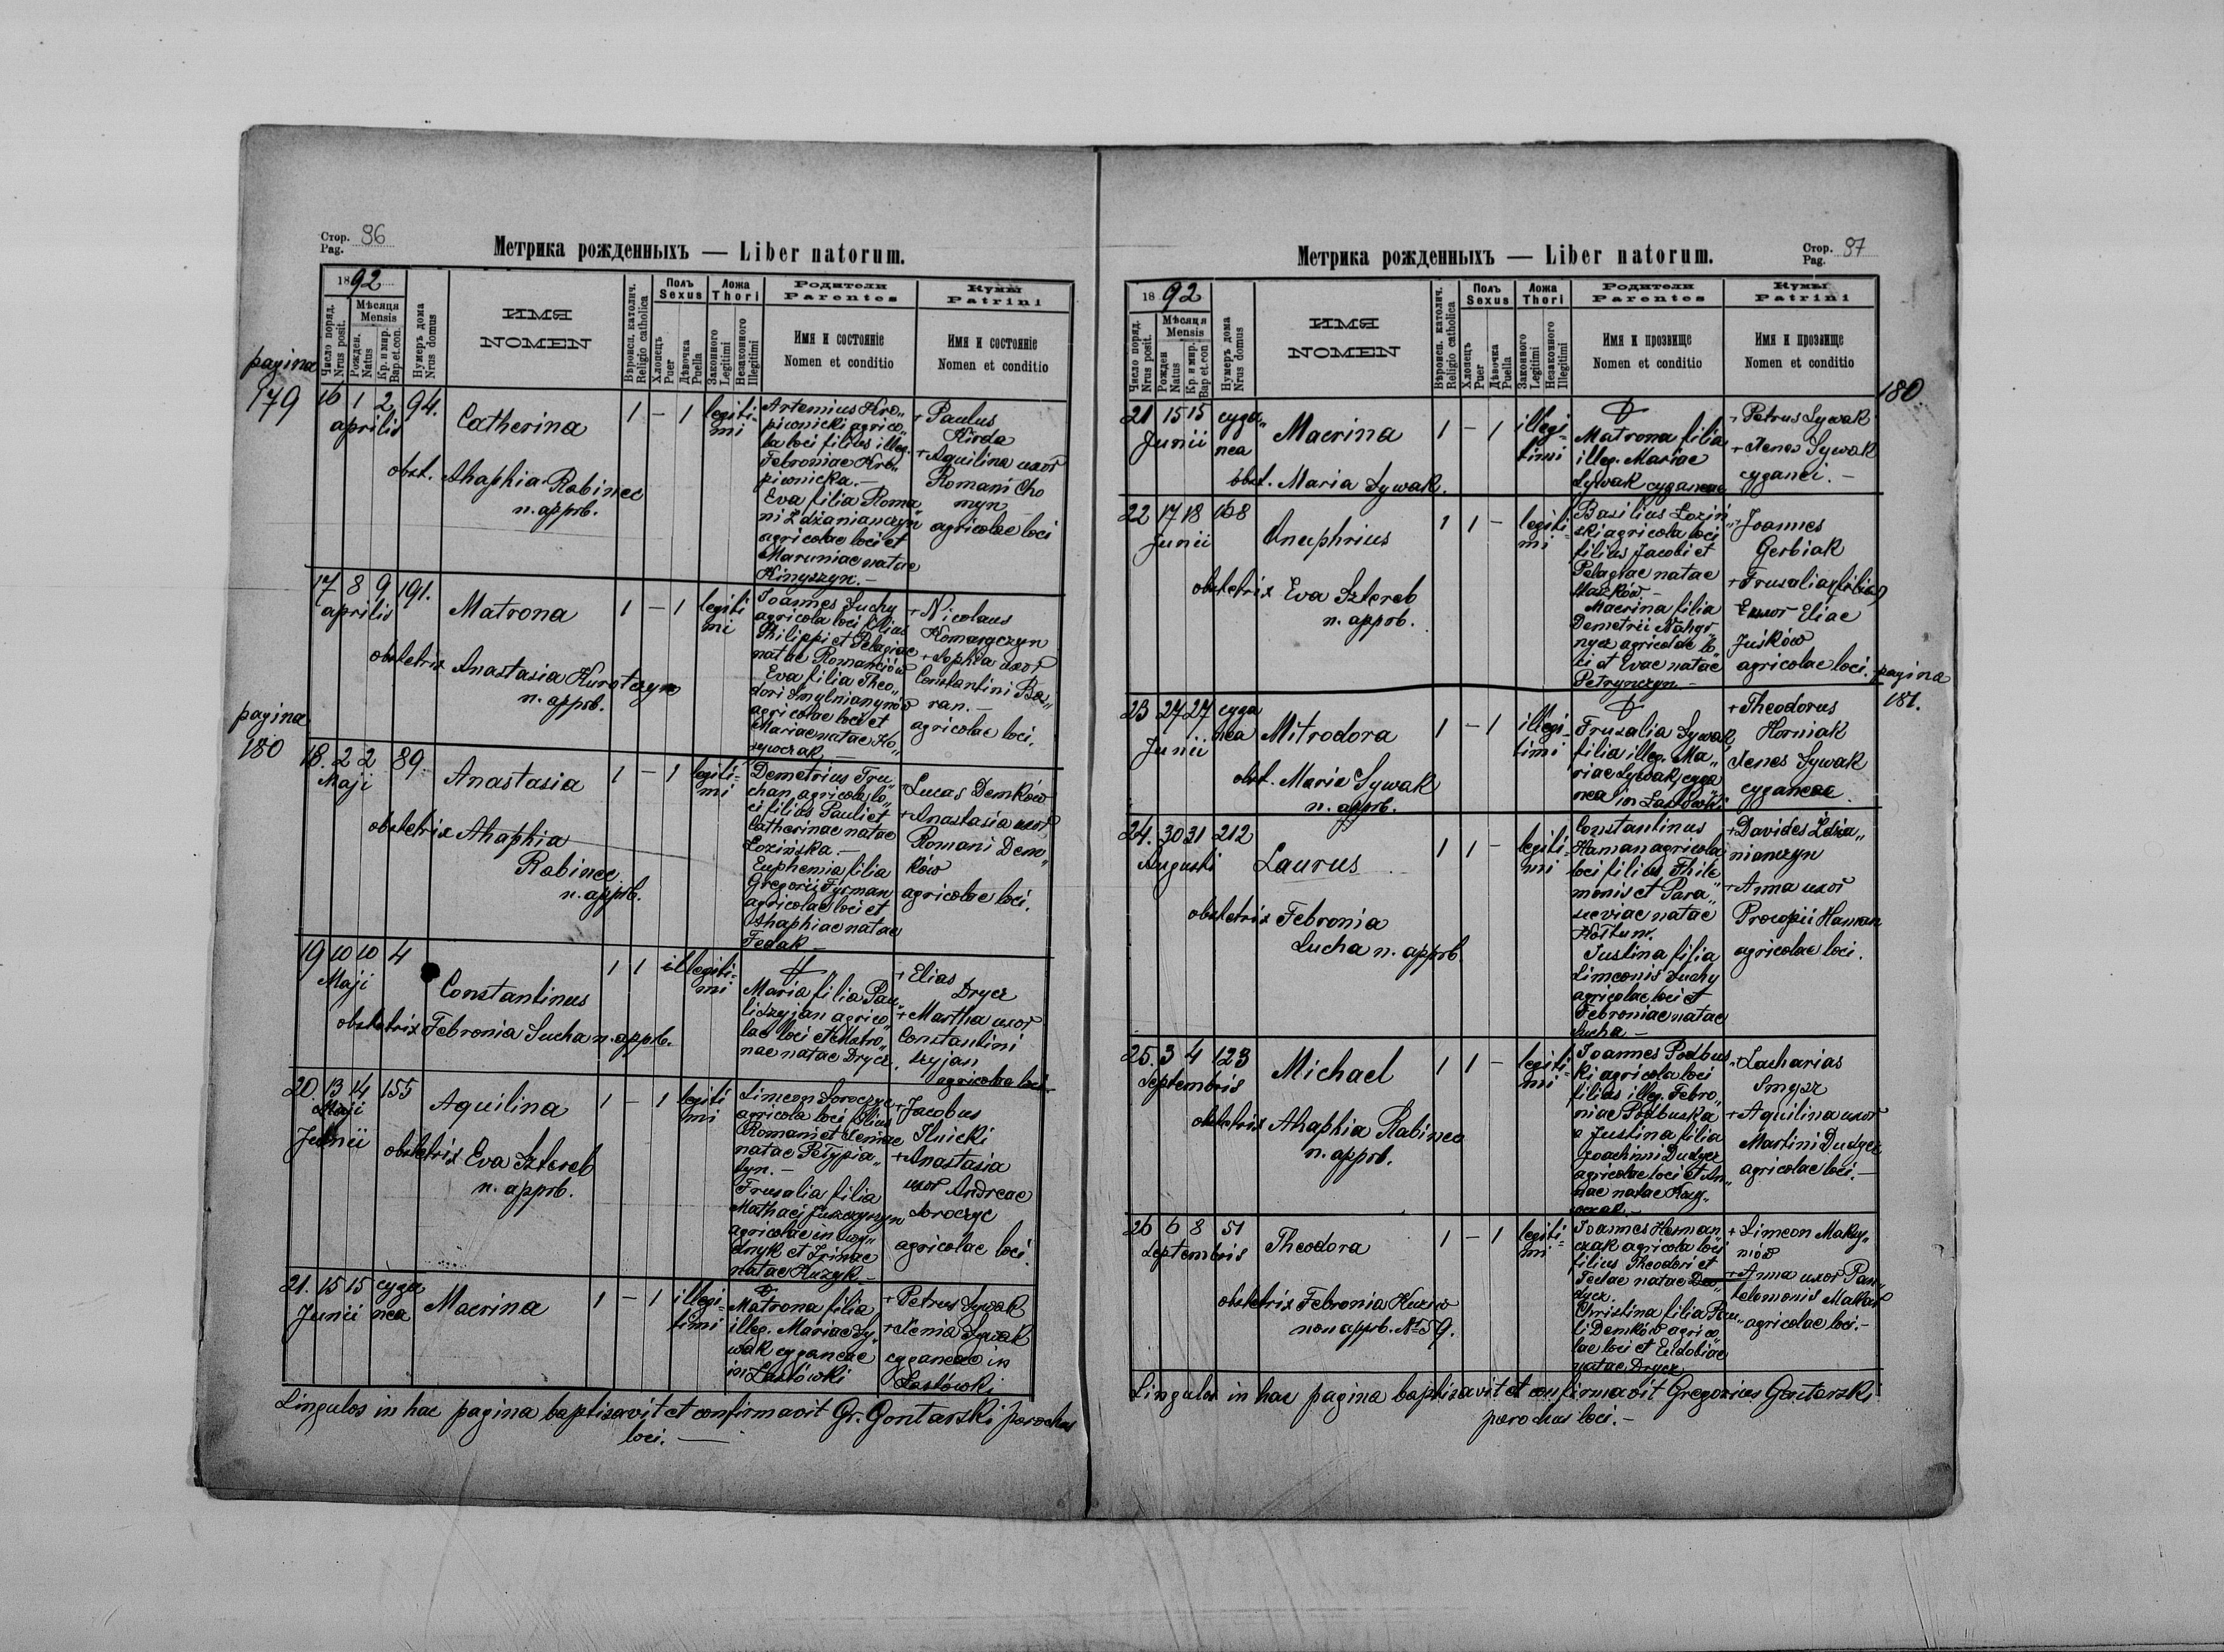 Стор. 96
Pag.
Метрика рожденныхъ — Liber natorum.
1892
Число поряд.
Nrus posit.
Мѣсяця
Mensis
Рожден.
Natus
Кр. и мир.
Bap.et.con.
Нумеръ дома
Nrus domus
ИМЯ
NOMEN
Вѣроисп. католич.
Religio catholica
Полъ
Sexus
Хлопецъ
Puer
Дѣвочка
Puella
Ложа
Thori
Законного
Legitimi
Незаконного
Illegitimi
Родители
Parentes
Имя и состояніе
Nomen et conditio
Кумы
Patrini
Имя и состояніе
Nomen et conditio
pagina
179
16 1 2 94.
aprilis
Catherina
1 - 1 legiti-
mi
obst. Ahaphia Rabinec
n. apprb.
Artemius Kro„
piwnicki agrico„
la loci filius illeg.
Febroniae Kro„
piwnicka.-
Eva filia Roma„
ni Zdzianianczyn
agricolae loci et
Maruniae natae
Kinyszyn.-
+ Paulus
Kirda
+ Aquilina uxor
Romani Cho
myn
agricolae loci
17 8 9 191.
aprilis
Matrona
1 - 1 legiti
mi
obstetrix Anastasia Kurotczyn
n. apprb.
Joannes Suchy
agricola loci filius
Philippi et Pelagiae
natae Romanciów
Eva filia Theo„
dori Smylnianynów
agricolae loci et
Mariae natae Ko„
sywczak
+ Nicolaus
Komaryczyn
+ Sophia uxor
Constantini Ba„
ran.-
agricolae loci.
pagina
180
18. 2 2 89.
Maji
Anastasia
1 - 1 legiti-
mi
obstetrix Ahaphia
Rabinec
n. apprb.
Demetrius Tru„
chan, agricola lo„
ci filius Pauli et
Catherinae natae
Łozińska.-
Euphemia filia
Gregorii Furman
agricolae loci et
Ahaphiae natae
Fedak-
Lucas Demków
+ Anastasia uxor
Romani Dem„
ków
agricolae loci.
19 10 10 4
Maji
Constantinus
1 1 illegiti-
mi
obstetrix Febronia Sucha n. apprb.
Maria filia Pau„
li Szyjan agrico„
lae loci et Matro„
nae natae Drycz.
+ Elias
Drycz
+ Martha uxor
Constantini
Szyjan
agricolae loci
20. 13 14 155
Maji
Junii
Aquilina
1 - 1 legiti
mi
obstetrix Eva Sztereb
n. apprb.
Simeon Soroczyc
agricola loci filius
Romani et Xeniae
natae Petypia„
tyn.-
Frusalia filia
Mathaei Juszczyszyn
agricolae in
et Irinae
natae Kuzyk.-
+ Jacobus
Ilnicki
+ Anastasia
uxor Andreae
Soroczyc
agricolae loci
21. 15 15 cyga
Junii nea
Macrina
1 - 1 illegi-
timi
Matrona filia
illeg. Mariae Sy„
wak cyganeae
in Łastówki
+ Petrus Sywak
+ Xenia Sywak
cyganeae in
Łastówki
Singulos in hac pagina baptisavit et confirmavit Gr. Gontarski parochus
loci.
Метрика рожденныхъ — Liber natorum.
Стор. 97
Pag.
1892
Число поряд.
Nrus posit.
Мѣсяця
Mensis
Рожден
Natus
Кр. и мир.
Bap et.con
Нумеръ дома
Nrus domus
ИМЯ
NOMEN
Вѣроисп. католич.
Religio catholica
Полъ
Sexus
Хлопецъ
Puer
Дѣвочка
Puella
Ложа
Thori
Законного
Legitimi
Незаконного
Illegitimi
Родители
Parentes
Имя и прозвище
Nomen et conditio
Кумы
Patrini
Имя и прозвище
Nomen et conditio
180.
21 15 15 cyga„
Junii nea
Macrina
1 - 1 illegi-
timi
obst. Maria Sywak.
Matrona filia
illeg. Mariae
Sywak cyganeae
+ Petrus Sywak
+ Xenes Sywak
cyganei.-
22 17 18 168
Junii
Onuphrius
1 1 - legiti
mi
obstetrix Eva Sztereb
n. apprb.
Basilius Łoziń„
ski agricola loci
filius Jacobi et
Pelagiae natae
Maćków-
Macrina filia
Demetrii Nahor„
nycz agricolae lo„
ci et Evae natae
Petrynczyn-
Joannes
Gerbiak
+ Frusalia (filia)
uxor Eliae
Juśków
agricolae loci.-
pagina
181.
23 27 27 cyga
Junii nea
Mitrodora
1 - 1 illegi-
timi
obst. Maria Sywak
n. apprb.
Frusalia Sywak
filia illeg. Ma„
riae Sywak, cyga
nea in Łastówki
+ Theodorus
Horniak
Xenes Sywak
cyganeae
24. 30 31 212
Augusti
Laurus
1 1 - legiti-
mi
obstetrix Febronia
Sucha n. apprb.
Constantinus
Haman agricola
loci filius Phile
monis et Para„
sceviae natae
Kołtun.
Justina filia
Simeonis Suchy
agricolae loci et
Febroniae natae
Sucha-
+ Davides Zdzia„
nianczyn
+ Anna uxor
Procopii Haman
agricolae loci.
25. 3 4 123
Septembris
Michael
1 1 - legiti-
mi
obstetrix Ahaphia Rabinec
n. apprb.
Joannes Podbus„
ki agricola loci
filius illeg. Febro„
niae Podbuska
Justina filia
Joachimi Dudycz
agricolae loci et An„
nae natae
+ Zacharias
Smysz
+ Aquilina uxor
Martini Dudycz
agricolae loci.-
26 6 8 51
Septembris
Theodora
1 - 1 legiti-
mi
obstetrix Febronia Kuziw
non apprb. № 59.
Joannes Herman„
czak agricola loci
filius Theodori et
Teclae natae
dycz.
Christina filia Pau„
li Demków agrico„
lae loci et Eudokiae
natae Drycz
+ Simeon Maky„
mów
+ Anna uxor Pan„
telemonis Makar
agricolae loci.-
Singulos in hac pagina baptisavit et confirmavit Gregorius Gontarski
parochus loci.-